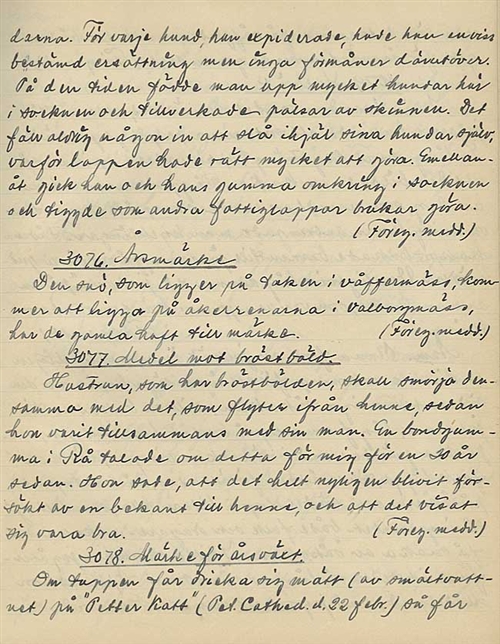 darna. För varje hund, han expiderade, hade han en viss
bestämd ersättning men inga förmåner därutöver.
På den tiden födde man upp mycket hundar här
i socknen och tillverkade pälsar av skinnen. Det
föll aldrig någon in att slå ihjäl sina hundar själv,
varför lappen hade rätt mycket att göra. Emellan-
åt gick han och hans gumma omkring i socknen
och tiggde som andra fattiglappar brukar göra.
(Föreg. medd.)
3076. Årsmärke
Den snö, som ligger på taken i våffermäss, kom
mer att ligga på åkerrenarna i valborgmäss,
har de gamla haft till märke. (Föreg. medd.)
3077. Medel mot bröstböld.
Hustrun, som har bröstbölden, skall smörja den-
samma med det, som flyter ifrån henne, sedan
hon varit tillsammans med sin man. En bondgum-
ma i Rå talade om detta för mig för en 20 år
sedan. Hon sade, att det helt nyligen blivit för-
sökt av en bekant till henne, och att det visat
sig vara bra. (Föreg. medd.)
3078. Märke för årsväxt.
Om tuppen får dricka sig mätt (av smältvatt-
net) på "Petter Katt" (Pet. Cathed. d. 22 febr.) så får